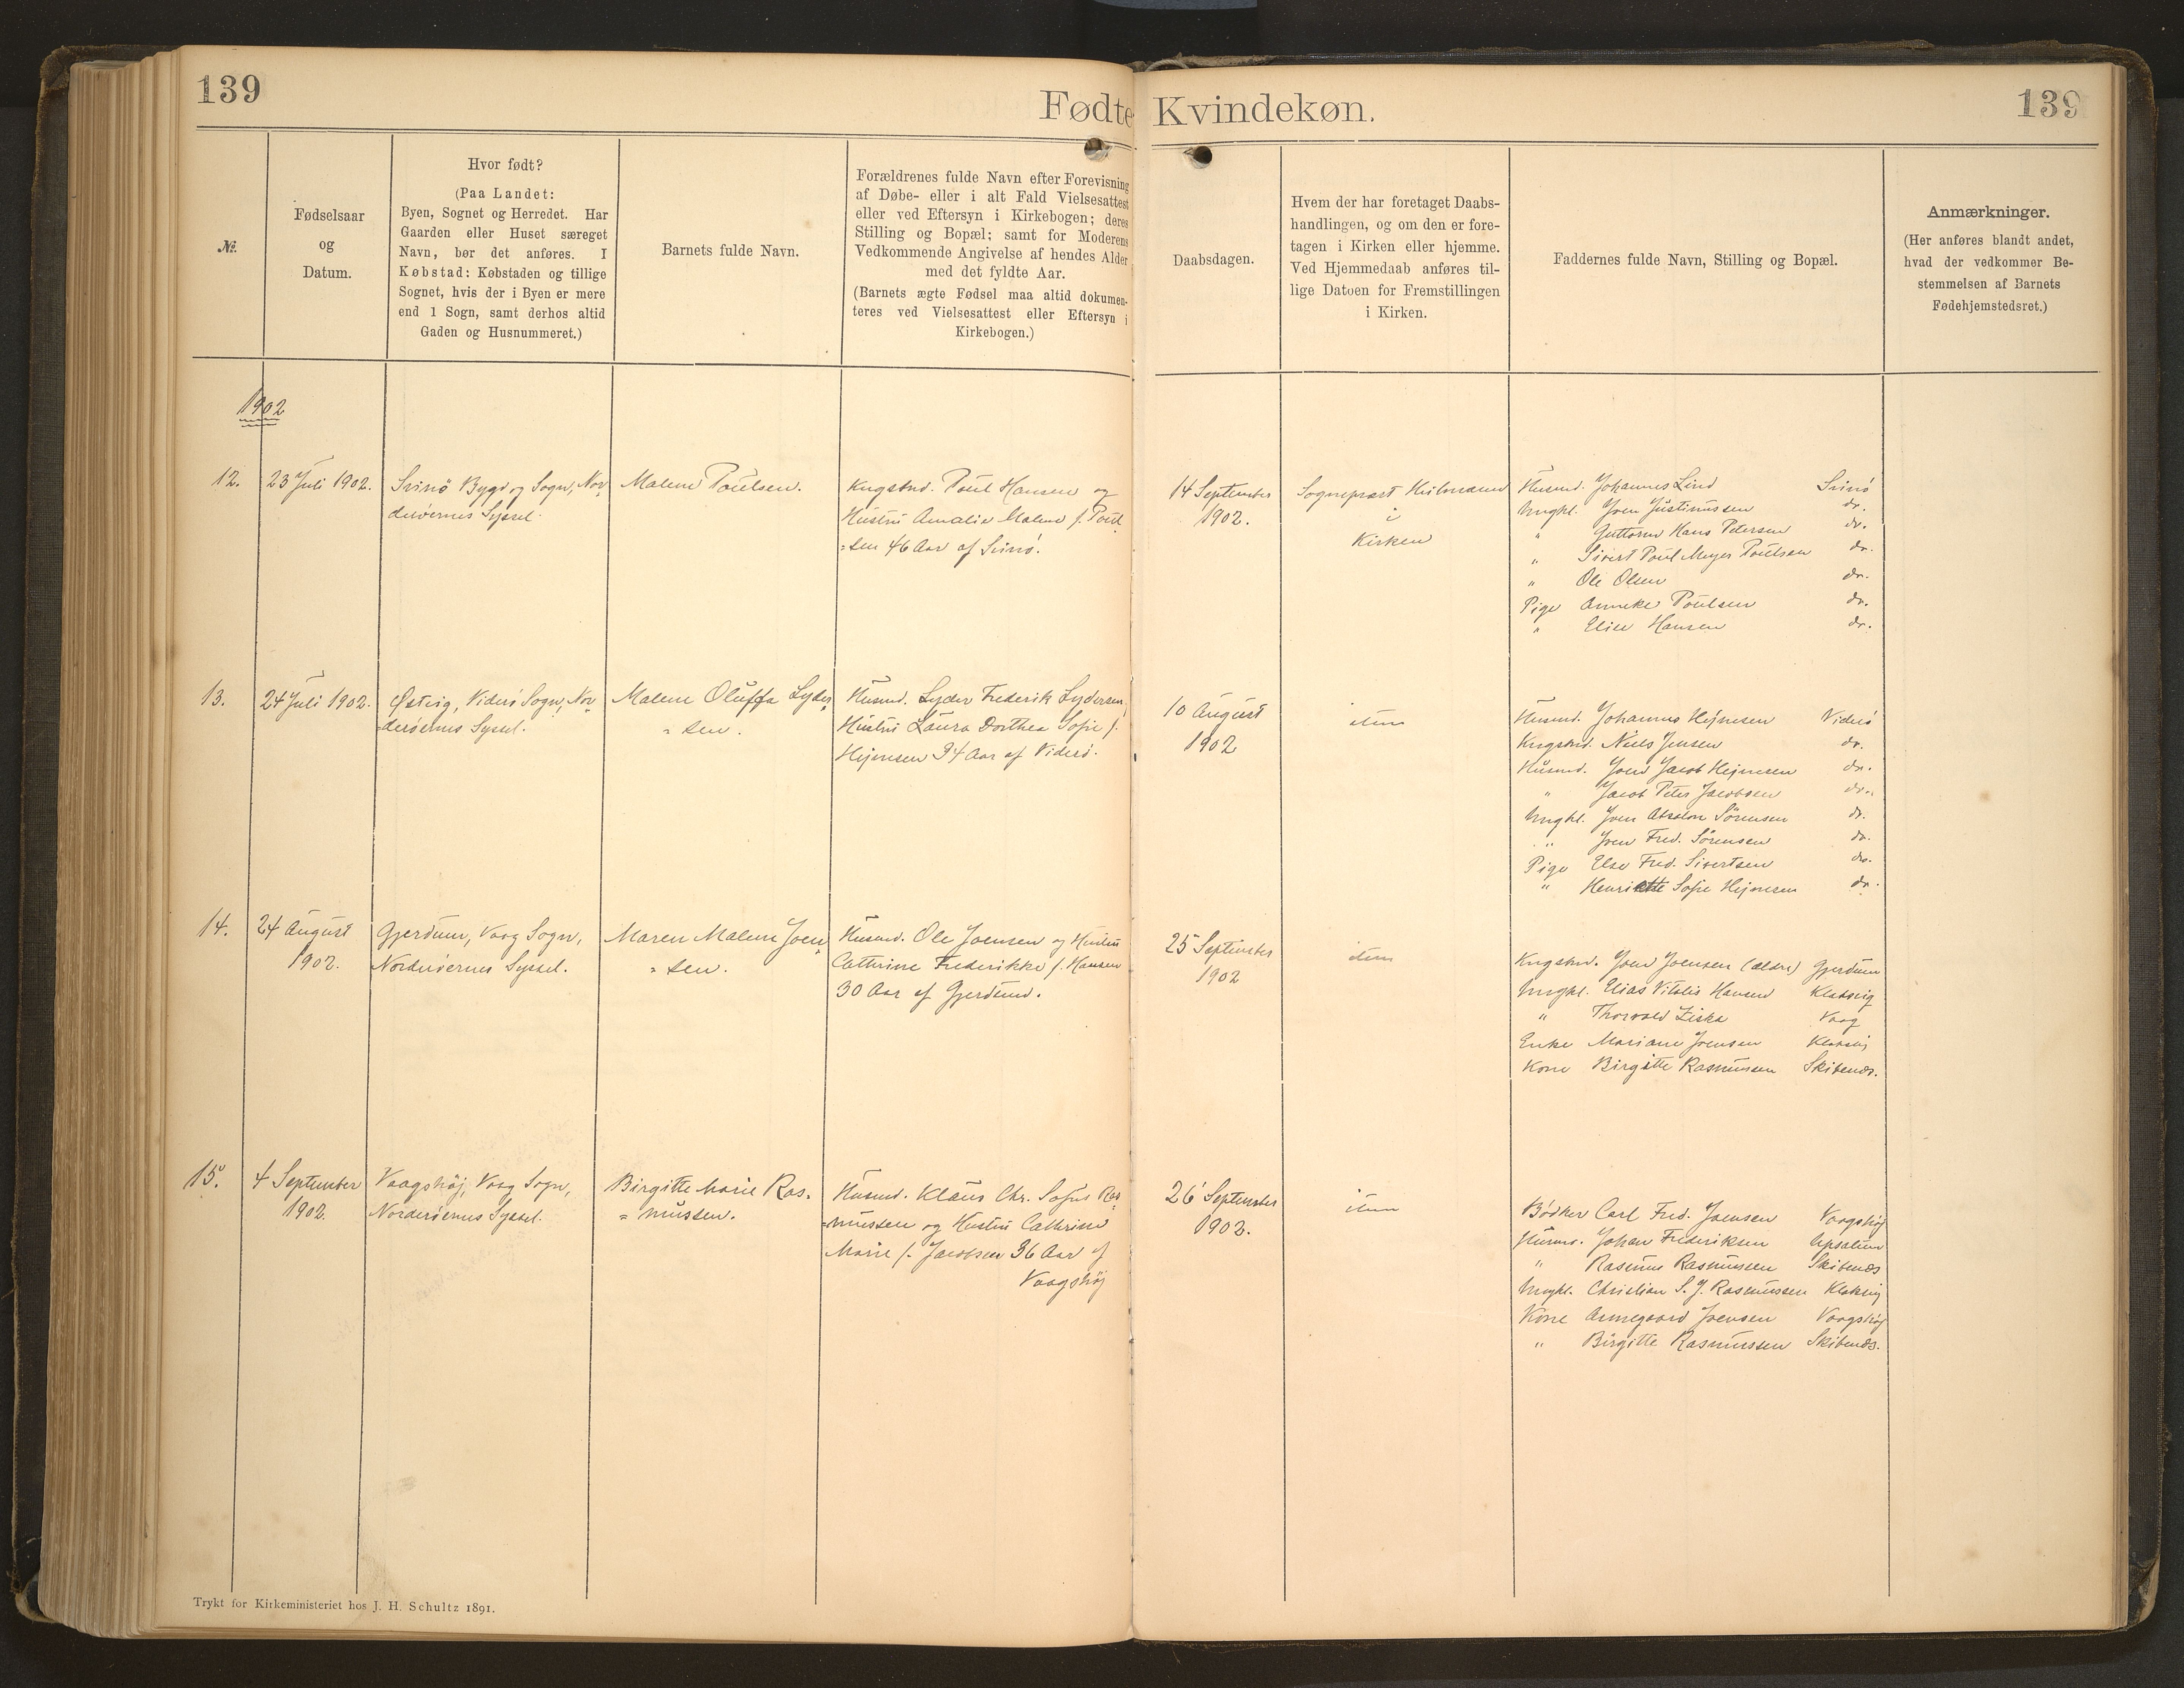 139
Fødte Kvindekøn.
139
№.
Fødselsaar
og
Datum.
Hvor født?
(Paa Landet:
Byen, Sognet og Herredet. Har
Gaarden eller Huset særeget
Navn, bør det anføres. I
Købstad: Købstaden og tillige
Sognet, hvis der i Byen er mere
end 1 Sogn, samt derhos altid
Gaden og Husnummeret.)
Barnets fulde Navn.
Forældrenes fulde Navn efter Forevisning
af Døbe- eller i alt Fald Vielsesattest
eller ved Eftersyn i Kirkebogen; deres
Stilling og Bopæl; samt for Moderens
Vedkommende Angivelse af hendes Alder
med det fyldte Aar.
(Barnets ægte Fødsel maa altid dokumen-
teres ved Vielsesattest eller Eftersyn i
Kirkebogen.)
Daabsdagen.
Hvem der har foretaget Daabs-
handlingen, og om den er fore-
tagen i Kirken eller hjemme.
Ved Hjemmedaab anføres til-
lige Datoen for Fremstillingen
i Kirken.
Faddernes fulde Navn, Stilling og Bopæl.
Anmærkninger.
(Her anføres blandt andet,
hvad der vedkommer Be-
stemmelsen af Barnets
Fødehjemstedsret.)
1902
12.
23 Juli 1902.
Svinö Bygd og Sogn, Nor
deröernes Syssel.
Malene Poulsen.
Kngsbnd. Poul Hansen og
Hustru Amalie Malene f. Poul
=sen 46 Aar af Svinö.
14 September
1902.
Sognepræst
i
Kirken
Husmd. Johannes Lind Svinö
Ungkl. Joen Justinussen do.
" Guttorm Hans Petersen do.
" Sivert Poul Meyer Poulsen do.
" Ole Olsen do.
Pige Anneke Poulsen do.
" Elise Hansen do.
13.
24 Juli 1902.
Østvig, Viderö Sogn, Nor
=deröernes Syssel.
Malene Oluffa Lyder
= sen.
Husmd. Lyder Frederik Lydersen,
Hustru Laura Dorthea Sofie f.
Hejnesen 34 Aar af Viderö.
10 August
1902
item
Husmd. Johannes Hejnesen Viderö
Kngsbnd. Niels Jensen do.
Husmd. Joen Jacob Hejnesen do.
" Jacob Peter Jacobsen do.
Ungkl. Joen Absalon Sörensen do.
" Joen Fred. Sörensen do.
Pige Else Fred. Sivertsen do.
" Henriette Sofie Hejnesen do.
14.
24 August
1902.
Gjerdum, Vaag Sogn,
Norderöernes Syssel.
Maren Malene Joen
= sen.
Husmd. Ole Joensen og Hustru
Cathrine Frederikke f. Hansen
30 Aar af Gjerdum.
25 September
1902
item
Kngsbnd. Joen Joensen (ældre) Gjerdum
Ungkl. Elias Vitalis Hansen Klaksvig
" Thorvald Ziska Vaag
Enke Mariane Joensen Klaksvig
Kone Birgitte Rasmussen Skibenæs.
15.
4 September
1902.
Vaagshöj, Vaag Sogn,
Norderöernes Syssel.
Birgitte Marie Ras.
= mussen.
Husmd. Klaus Chr. Sofus Ras
=mussen og Hustru Cathrine
Marie f. Jacobsen 36 Aar af
Vaagshöj
26 September
1902.
item
Bödker Carl Fred. Joensen Vaagshöj
Husmd. Johan Frederiksen Upsalum
" Rasmus Rasmussen Skibenæs
Ungkl. Christian S. J. Rasmussen Klaksvig
Kone Annegaard Joensen Vaagshöj
" Birgitte Rasmussen Skibenæs.
Trykt for Kirkeministeriet hos J. H. Schultz 1891.